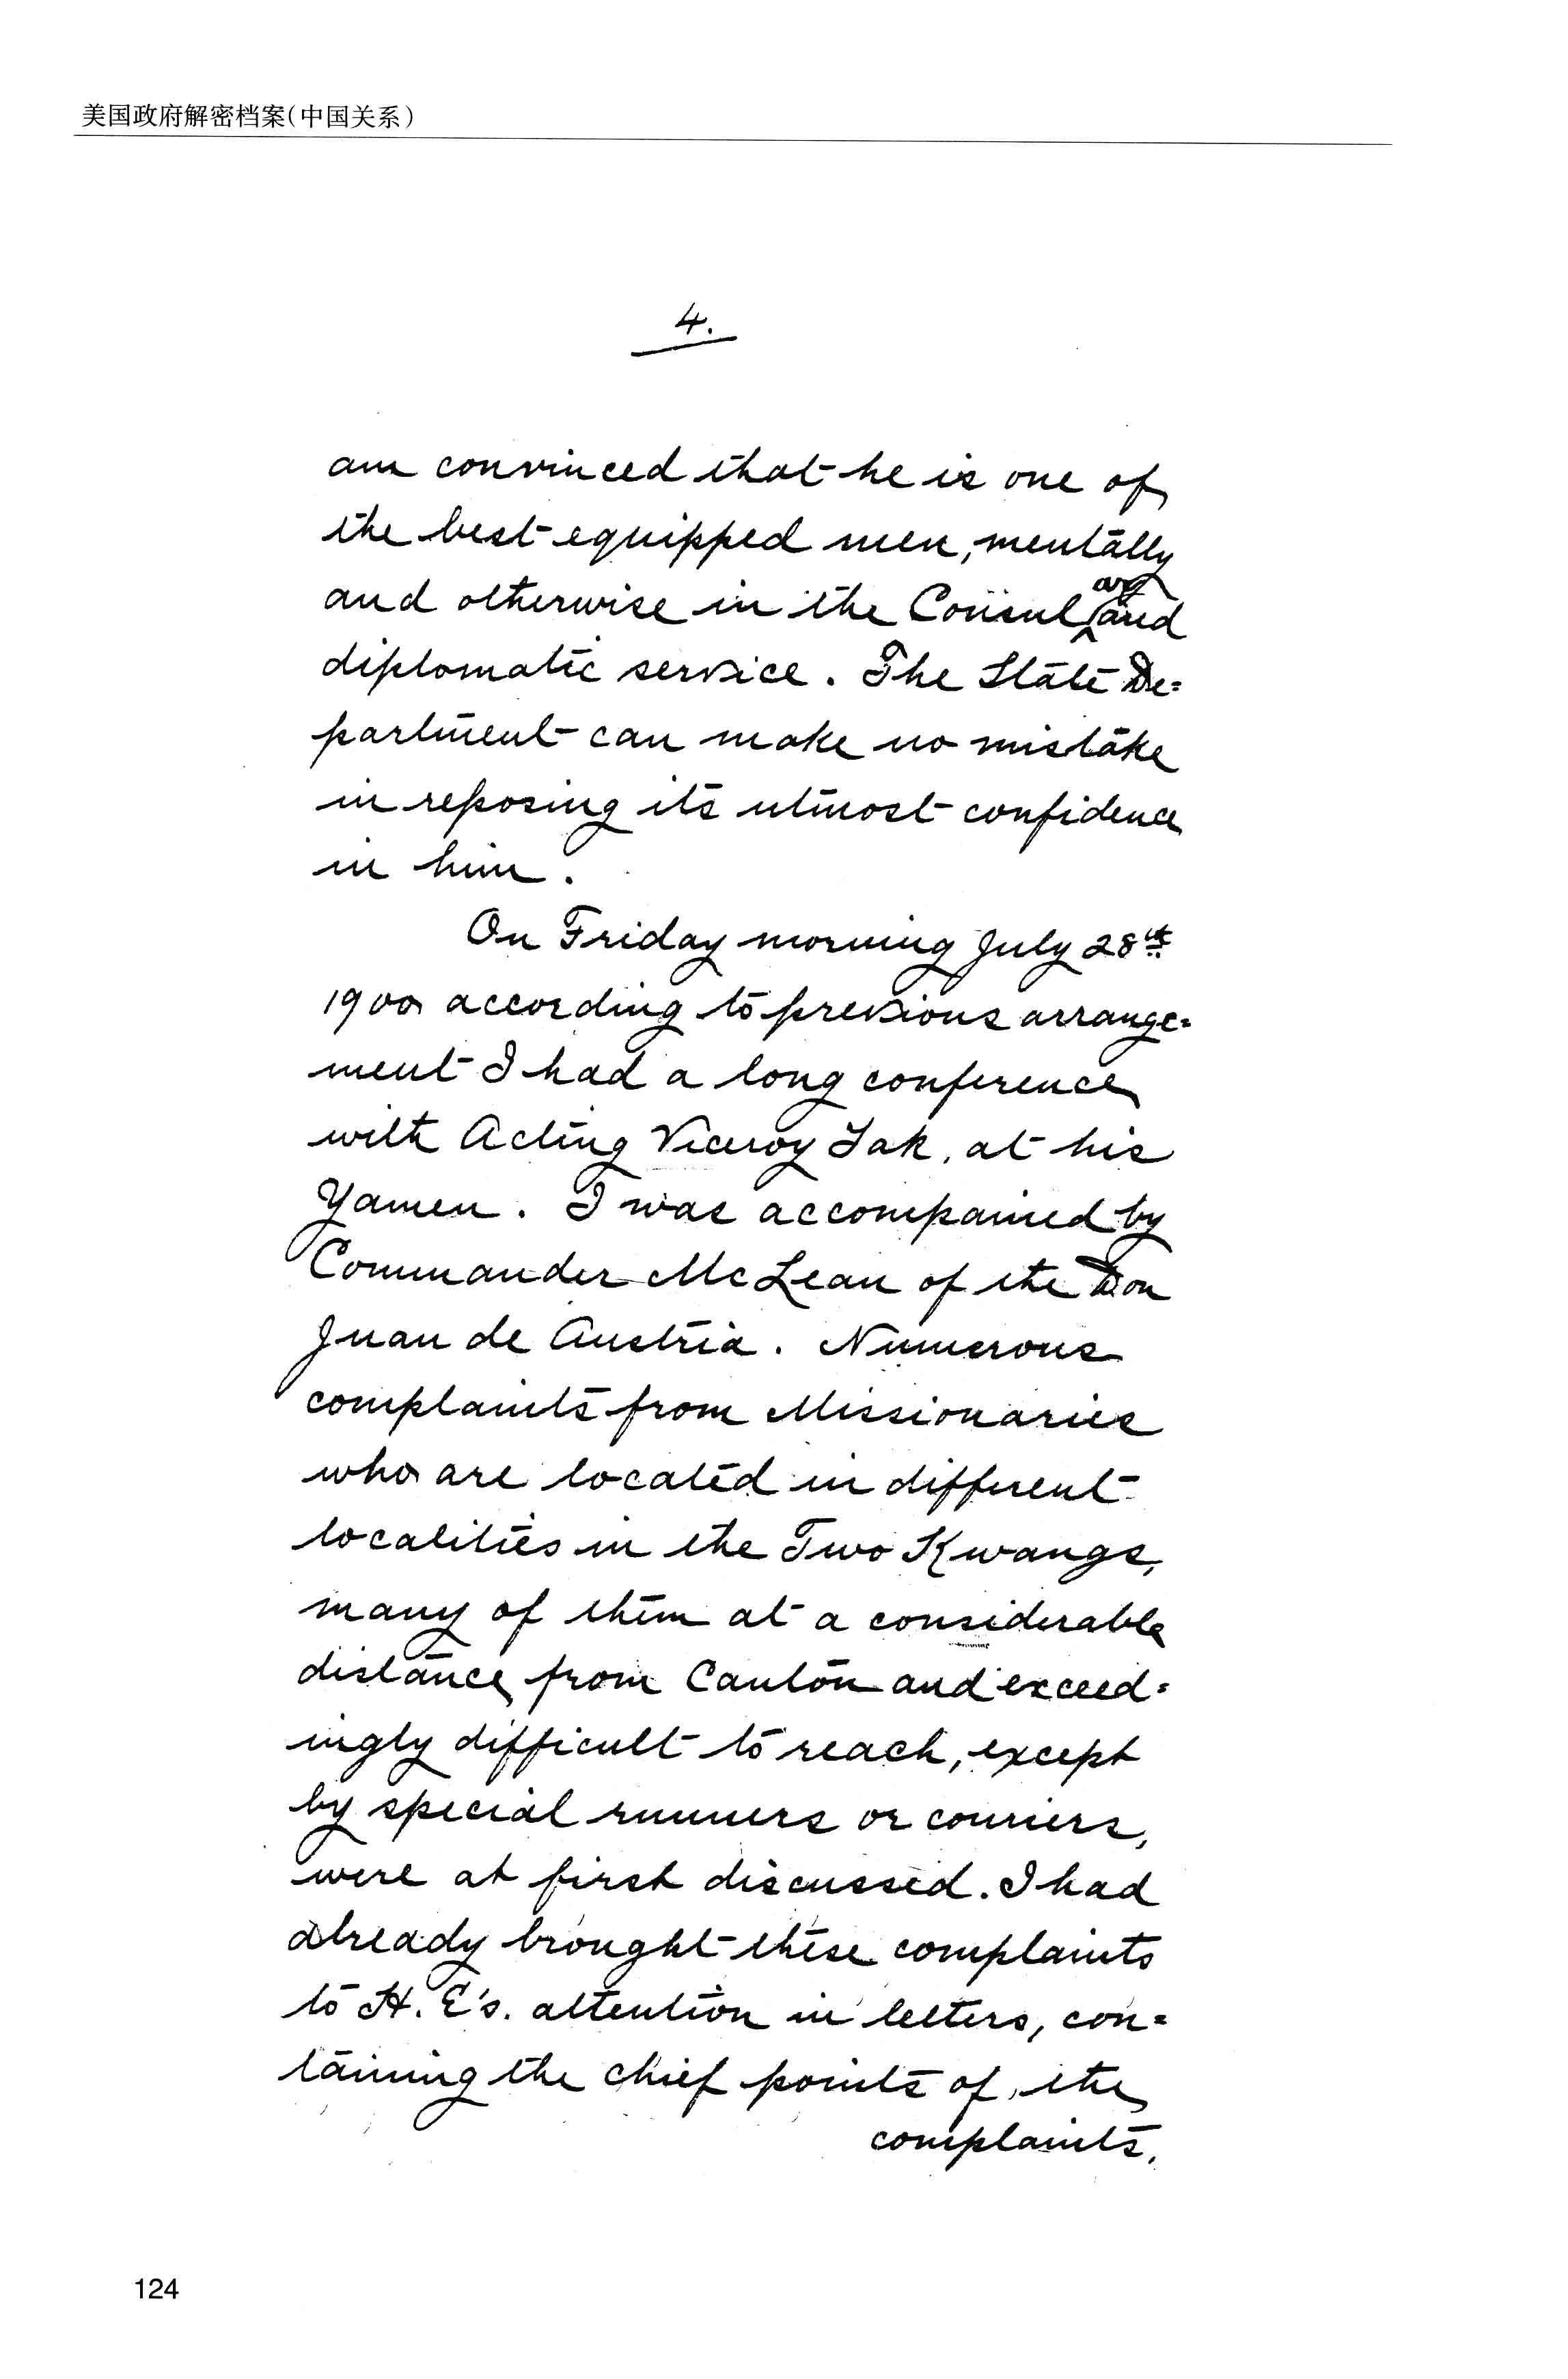 美国政府解密档案(中国关系)
4.
am convinced that he is one of
the best equipped men, mentally
and otherwise in the Consular and
diplomatic service. The State De=
partment can make no mistake
in reposing its utmost confidence
in him.
On Friday morning July 28th
1900 according to previous arrange=
ment I had a long conference
with Acting Viceroy Tak, at his
Yamen. I was accompanied by
Commander McLean of the Don
Juan de Austria. Numerous
complaints from Missionaries
who are located in different
localities in the Two Kwangs,
many of them at a considerable
distance from Canton and exceed=
ingly difficult to reach, except
by special runners or couriers,
were at first discussed. I had
already brought these complaints
to H. E's. attention in letters, con=
taining the chief points of the
complaints.
124